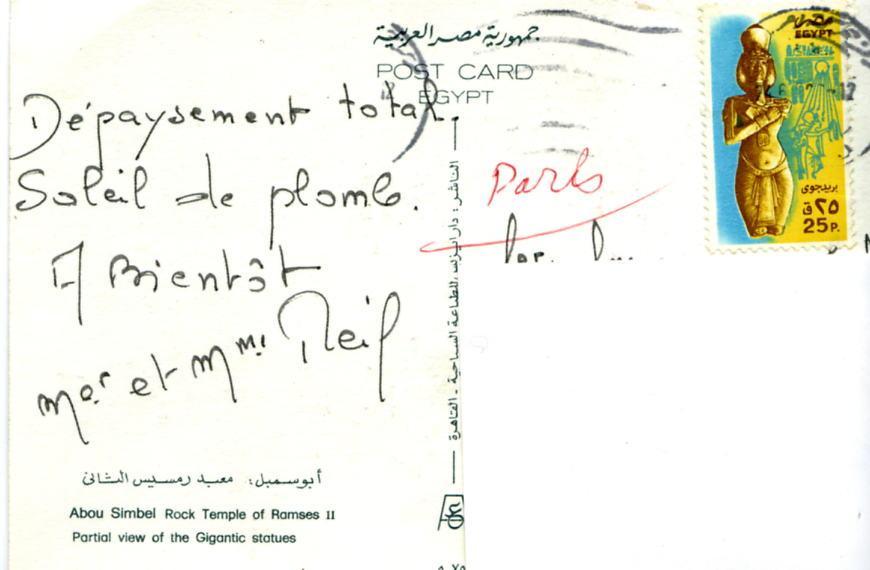 جمهورية مصر العربية
POST CARD
EGYPT
Dépaysement total.
Soleil de plomb.
A Bientôt
mer et Mme
أبو سمبل: معبد رمسيس الثانى
Abou Simbel Rock Temple of Ramses II
Partial view of the Gigantic statues
الناشر: دار ايزيس للطباعة السياحية - القاهرة
Paris
مصر
EGYPT
بريد جوى
٢٥ ق
25 P.